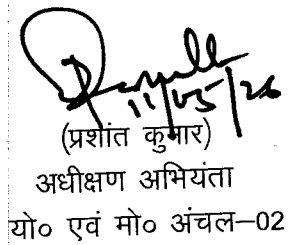 11/05/26
(प्रशांत कुमार)
अधीक्षण अभियंता
यो० एवं मो० अंचल–02